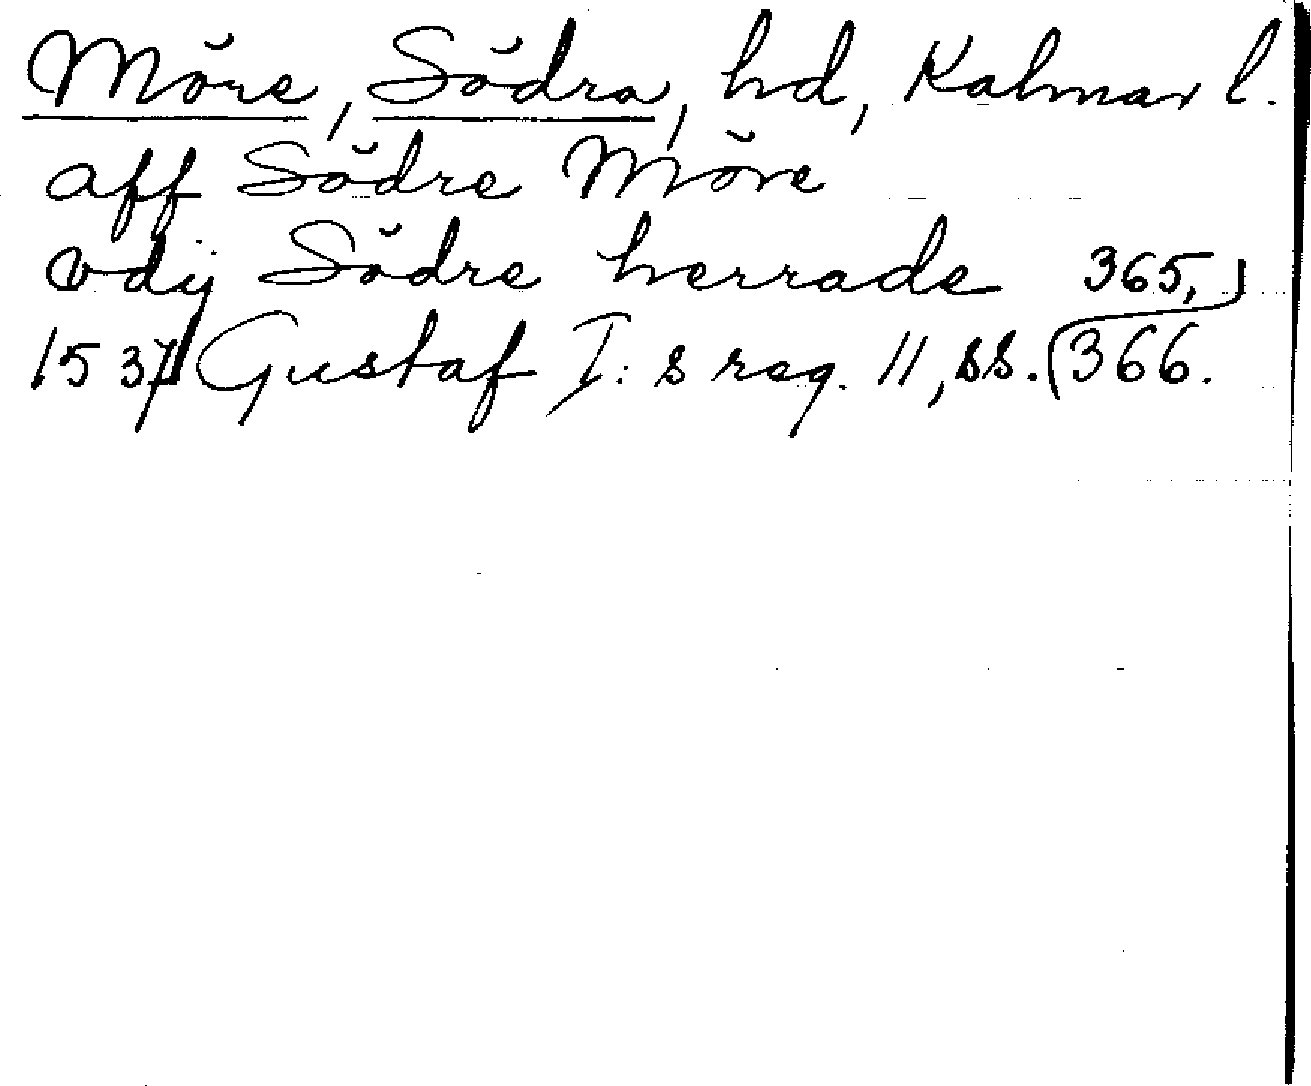 Möre, Södra, hd, Kalmar l.
aff Södre Möre
vdij Södre herrade 365,
1537 Gustaf I:s reg. 11, ss. 366.